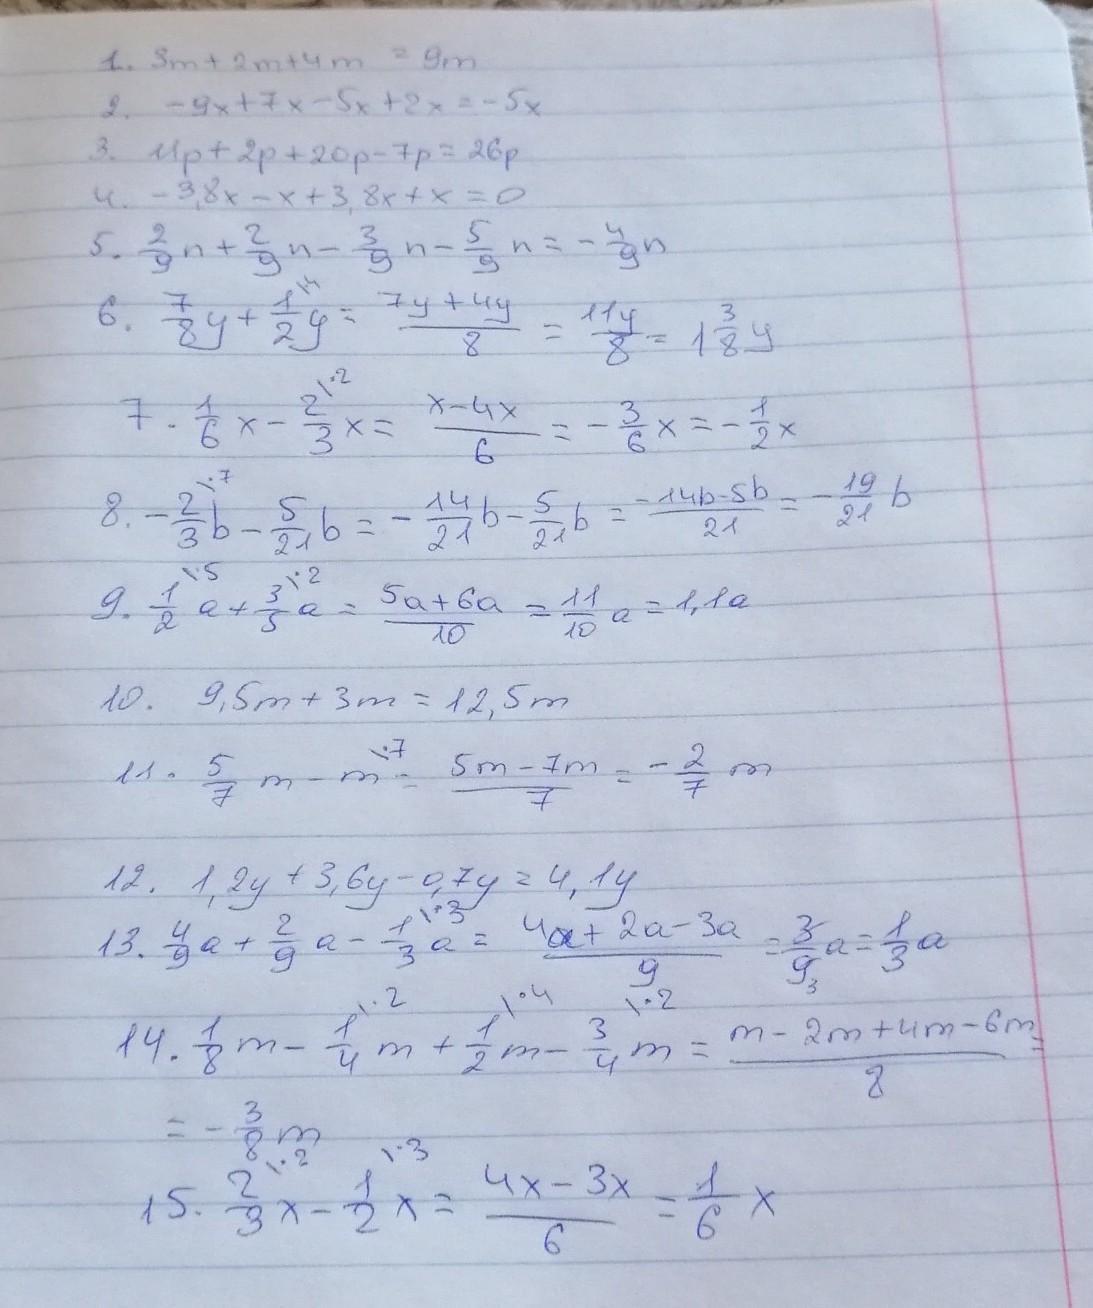 1. 3m + 2m + 4m = 9m
2. -9x + 7x - 5x + 2x = -5x
3. 11p + 2p + 20p - 7p = 26p
4. -3,8x - x + 3,8x + x = 0
5. 2/9 n + 2/9 n - 3/9 n - 5/9 n = - 4/9 n
6. 7/8 y + 1/2 y \·4 = (7y + 4y)/8 = 11y/8 = 1 3/8 y
7. 1/6 x - 2/3 \·2 x = (x - 4x)/6 = - 3/6 x = - 1/2 x
8. - 2/3 \·7 b - 5/21 b = - 14/21 b - 5/21 b = (-14b - 5b)/21 = - 19/21 b
9. 1/2 \·5 a + 3/5 \·2 a = (5a + 6a)/10 = 11/10 a = 1,1a
10. 9,5m + 3m = 12,5m
11. 5/7 m - m \·7 = (5m - 7m)/7 = - 2/7 m
12. 1,2y + 3,6y - 0,7y = 4,1y
13. 4/9 a + 2/9 a - 1/3 \·3 a = (4a + 2a - 3a)/9 = 3/9 3 a = 1/3 a
14. 1/8 m - 1/4 \·2 m + 1/2 \·4 m - 3/4 \·2 m = (m - 2m + 4m - 6m)/8 =
= - 3/8 m
15. 2/3 \·2 x - 1/2 \·3 x = (4x - 3x)/6 = 1/6 x